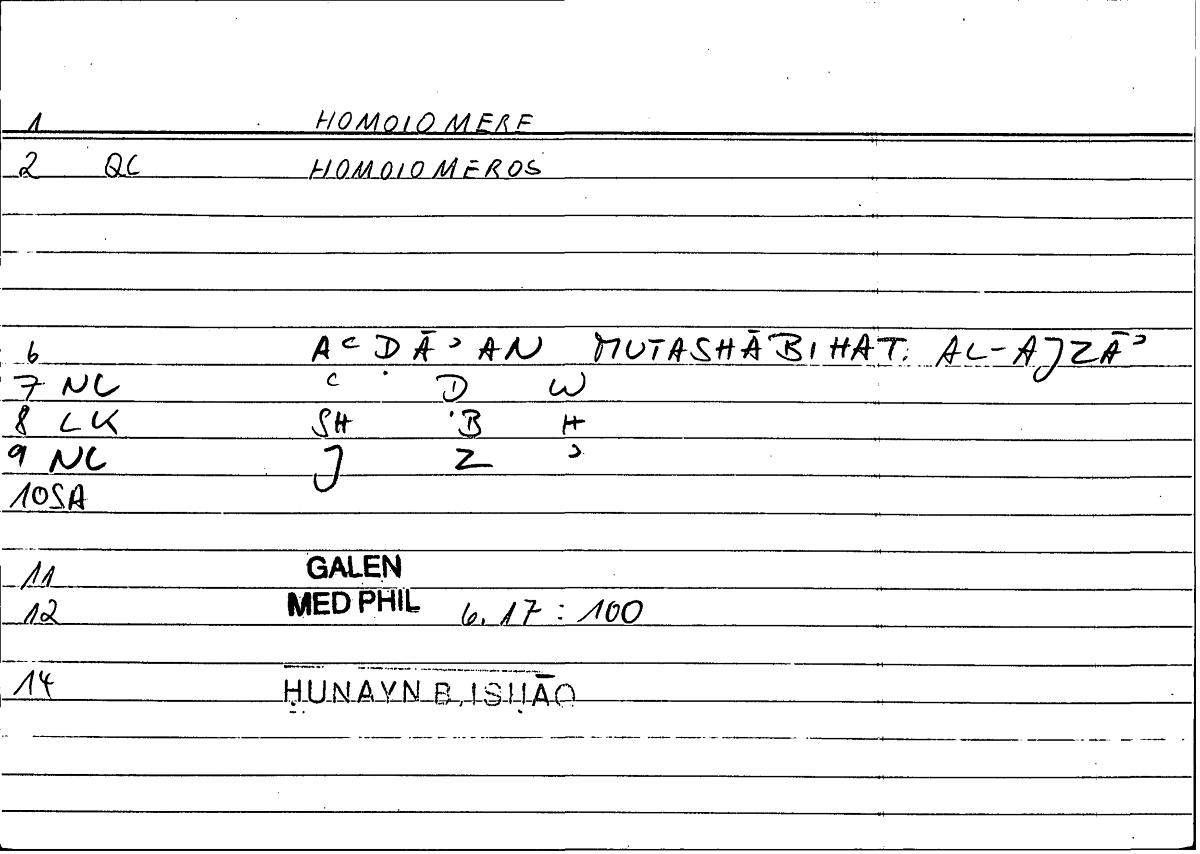 1 HOMOIOMERE
2 QC HOMOIOMEROS
6 AʿḌĀʾAN MUTASHĀBIHAT. AL-AJZĀʾ
7 NC ʿ Ḍ W
8 LK SH B H
9 NC J Z ʾ
10 SA
11 GALEN
12 MED PHIL 6.17 : 100
14 ḤUNAYN B. ISḤĀQ